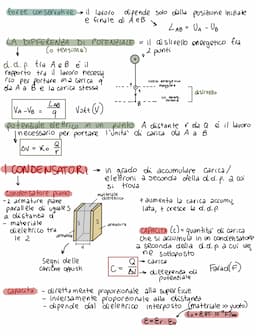 forze conservative → il lavoro dipende solo dalla posizione iniziale e finale di A e B
L_AB = U_A - U_B
LA DIFFERENZA DI POTENZIALE = il dislivello energetico tra
(o tensione) 2 punti
d.d.p. tra A e B è il
rapporto tra il lavoro necessa
rio per portare una carica q
da A a B e la carica stessa
dislivello
V_A - V_B = L_AB / q Volt (V)
potenziale elettrico in un punto A distanza r da Q è il lavoro
necessario per portare l'unità di carica da A a B
ΔV = K₀ Q/r
I CONDENSATORI → in grado di accumulare carica/
elettroni a seconda della d.d.p. a cui
si trova
condensatore piano
- 2 armature piane
parallele di uguale S
a distanza d
- materiale
dielettrico tra
le 2
materiale
dielettrico
armatura
armature
Segni delle
cariche opposti
+ aumenta la carica accumu
lata, + cresce la d.d.p
CAPACITÀ (C) = quantità di carica
che si accumula in un condensatore
a seconda della d.d.p a cui vie
ne sottoposto
C = Q/ΔV
carica
differenza di
potenziale
Farad (F)
capacità - direttamente proporzionale alla superficie
- inversamente proporzionale alla distanza
- dipende dal dielettrico interposto (materiale o vuoto)
ε = ε₀ · εᵣ